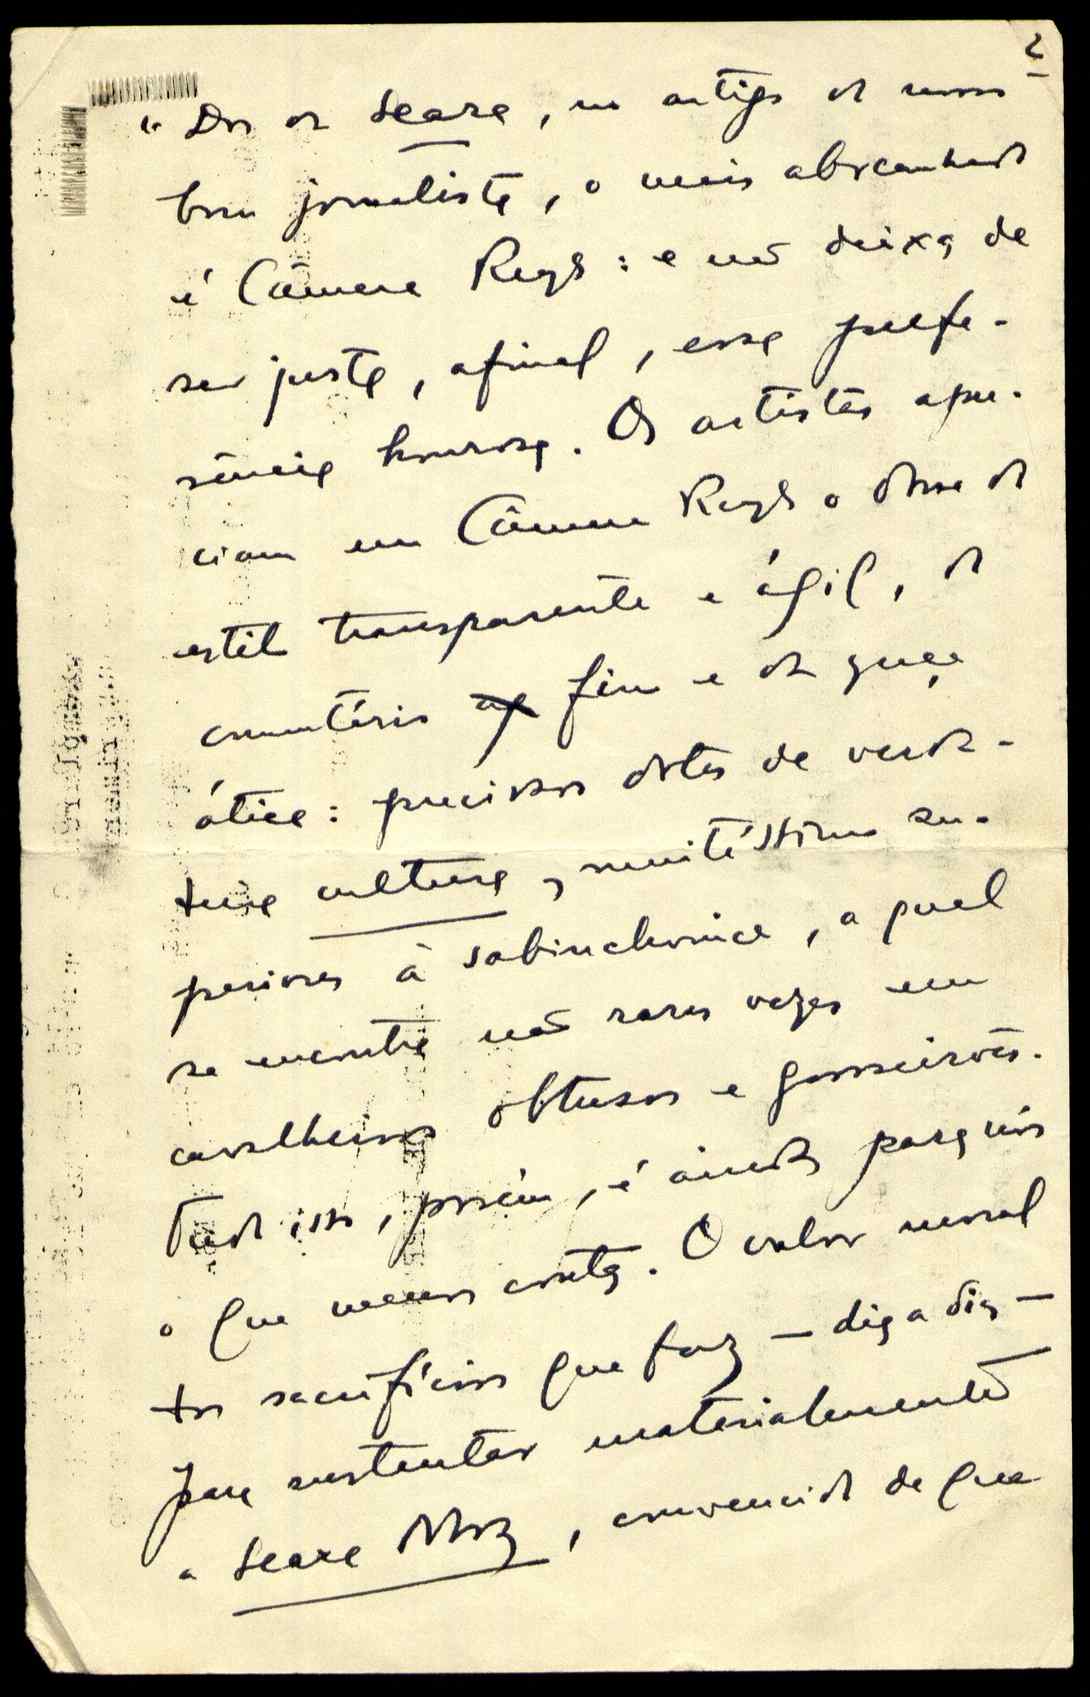 2
"Dos da Seara, no artigo do nosso
bom jornalista, o mais abocanhado
é Câmara Reys: e não deixa de
ser justa, afinal, essa prefe-
rência honrosa. Os artistas apre-
ciam em Câmara Reys o dom do
estilo transparente e ágil, do
comentário fino e da graça
ática: preciosos dotes de verda-
deira cultura, muitíssimo su-
periores à sabichonice, a qual
se encontra não raras vezes em
cavalheiros obtusos e grosseirões.
Tudo isso, porém, é ainda para nós
o que menos conta. O valor moral
dos sacrifícios que faz — dia a dia —
para sustentar materialmente
a Seara Nova, convencido de que